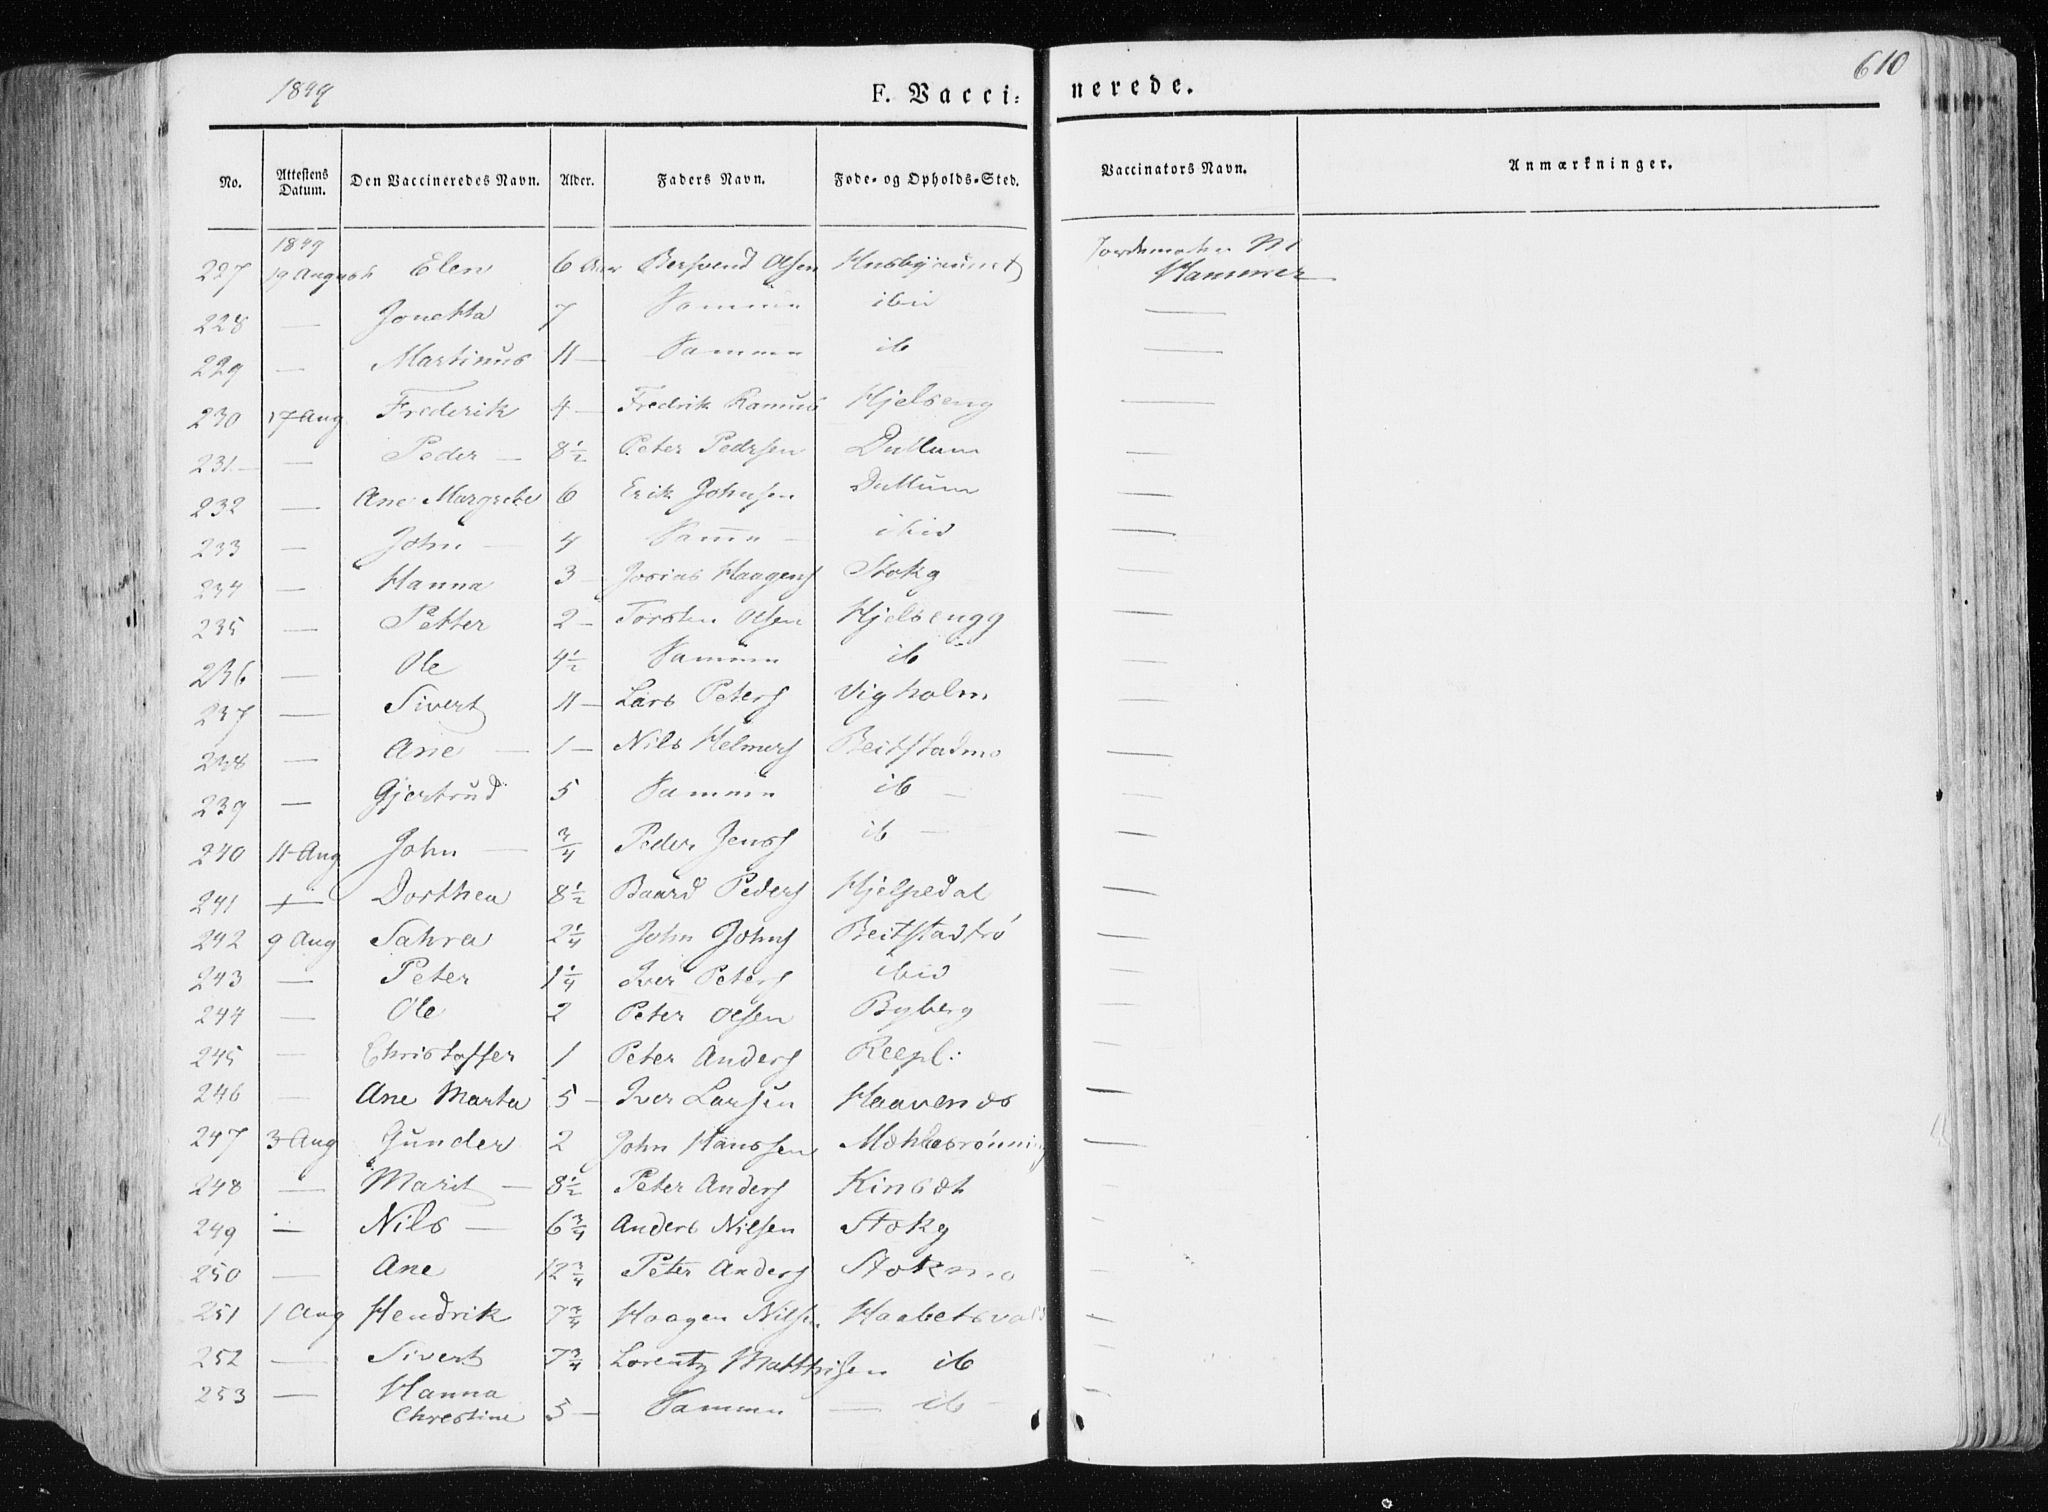 1849 F. Vacci: nerede. 610
No. Attestens Datum. Den Vaccineredes Navn. Alder. Faders Navn. Føde- og Opholds-Sted. Vaccinators Navn. Anmærkninger.
1849
227 19 August Elen 6 Aar Bersvend Olsen Husbyaunet Jordemoder M Hammer
228 — Jonetta 7 Samme ibid —
229 — Martinus 11 — Samme ib —
230 17 Aug Frederik 4 — Fredrik Ramus Hjelseng —
231 — Peder — 8 1/2 Peter Pedrsen Dullum —
232 — Ane Margrete 6 Erik Johnsen Dullum —
233 — John — 4 Samme — ibid —
234 — Hanna 3 — Josias Haagens Stokg —
235 — Petter 2 — Torsten Olsen Hjelsengg —
236 — Ole 4 1/2 Samme ib —
237 — Sivert 11 — Lars Peters Vigholm —
238 — Ane — 1 — Nils Helmers Beitstadmo —
239 — Gjertrud 5 Samme ib — —
240 11 Aug John — 3/4 Peder Jenss ib — —
241 — Dorthea 8 1/2 Baard Peders Hjelpedal —
242 9 Aug Sahra 2 1/4 John Johns Beitstadfrø —
243 — Peter 1 1/4 Iver Peters ibid —
244 — Ole 2 Peter Olsen Byberg —
245 — Christoffer 1 Peter Anders Reepl: —
246 — Ane Marta 5 — Iver Larsen —
247 3 Aug Gunder 2 John Hanssen —
248 — Marit — 8 1/2 Peter Anders —
249 — Nils — 6 3/4 Anders Nilsen Stokg —
250 — Ane 12 3/4 Peter Anders Stokmo —
251 1 Aug Hendrik 7 3/4 Haagen Nilsen —
252 — Sivert 7 3/4 Lorentz Matthisen ib —
253 — Hanna Chrestine 5 — Samme — ib — —